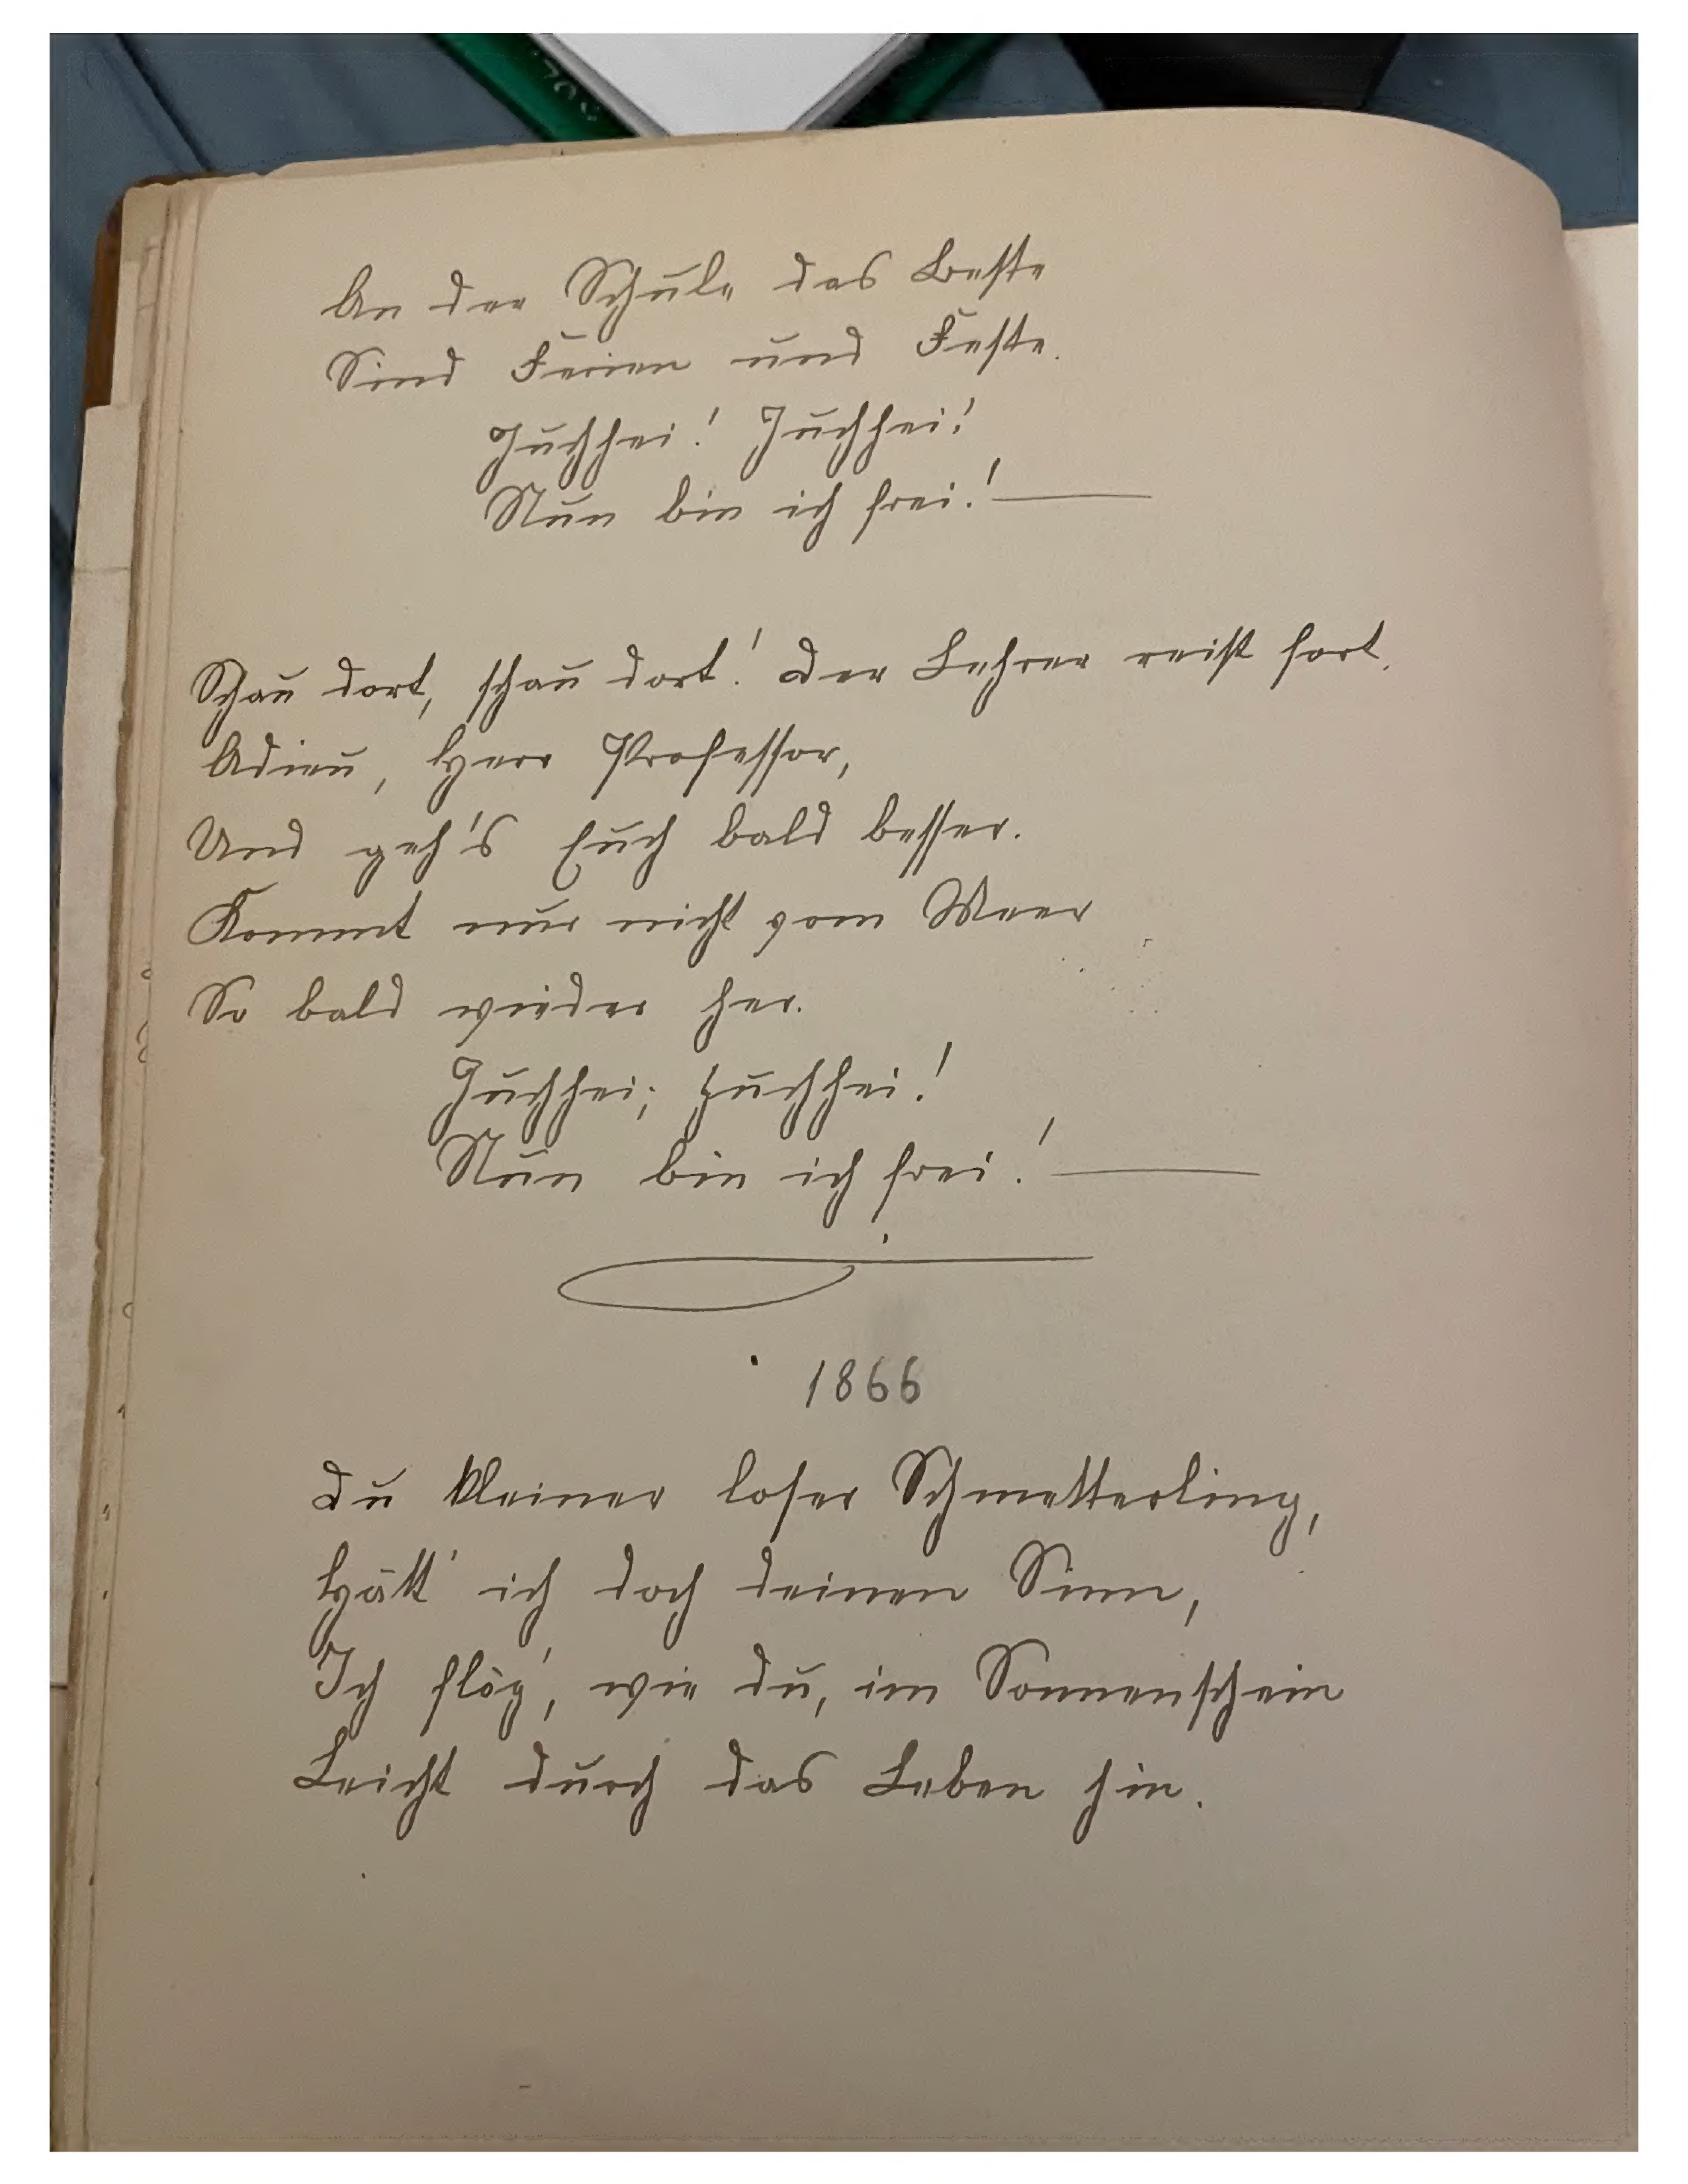 An der Schule das Beste
Sind Ferien und Feste.
Juchhei! Juchhei!
Nun bin ich frei! —
Schau dort, schau dort! Der Lehrer reist fort.
Adieu, Herr Professor,
Und geh's Euch bald besser.
Kommt nur nicht vom Meer
So bald wieder her.
Juchhei; juchhei!
Nun bin ich frei! —
1866
Du kleiner loser Schmetterling,
Hätt' ich doch deinen Sinn,
Ich flög', wie du, im Sonnenschein
Leicht durch das Leben hin.